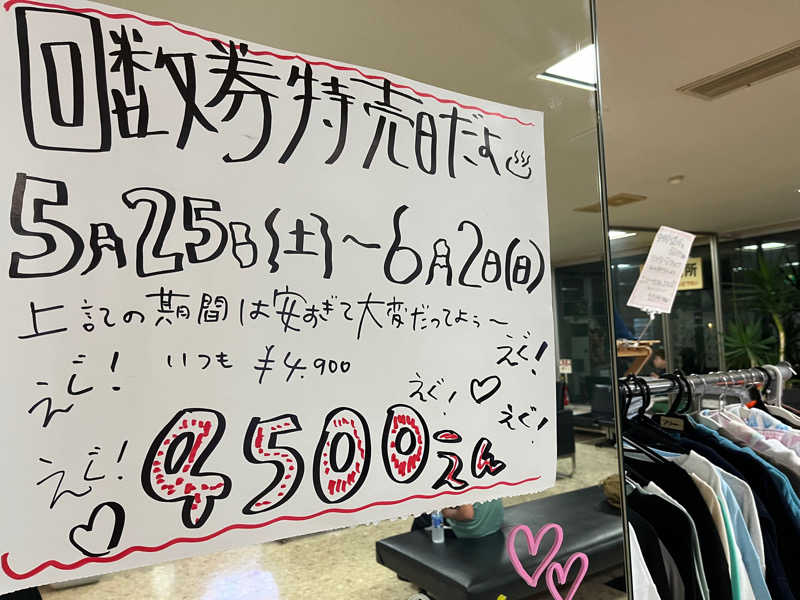 回数券特売日だよ♨
5月25日(土)〜6月2日(日)
上記の期間は安すぎて大変だってよぅ〜
いつも ¥4.900
えぐ!
えぐ!
えぐ!
えぐ!
えぐ!
4500えん
所